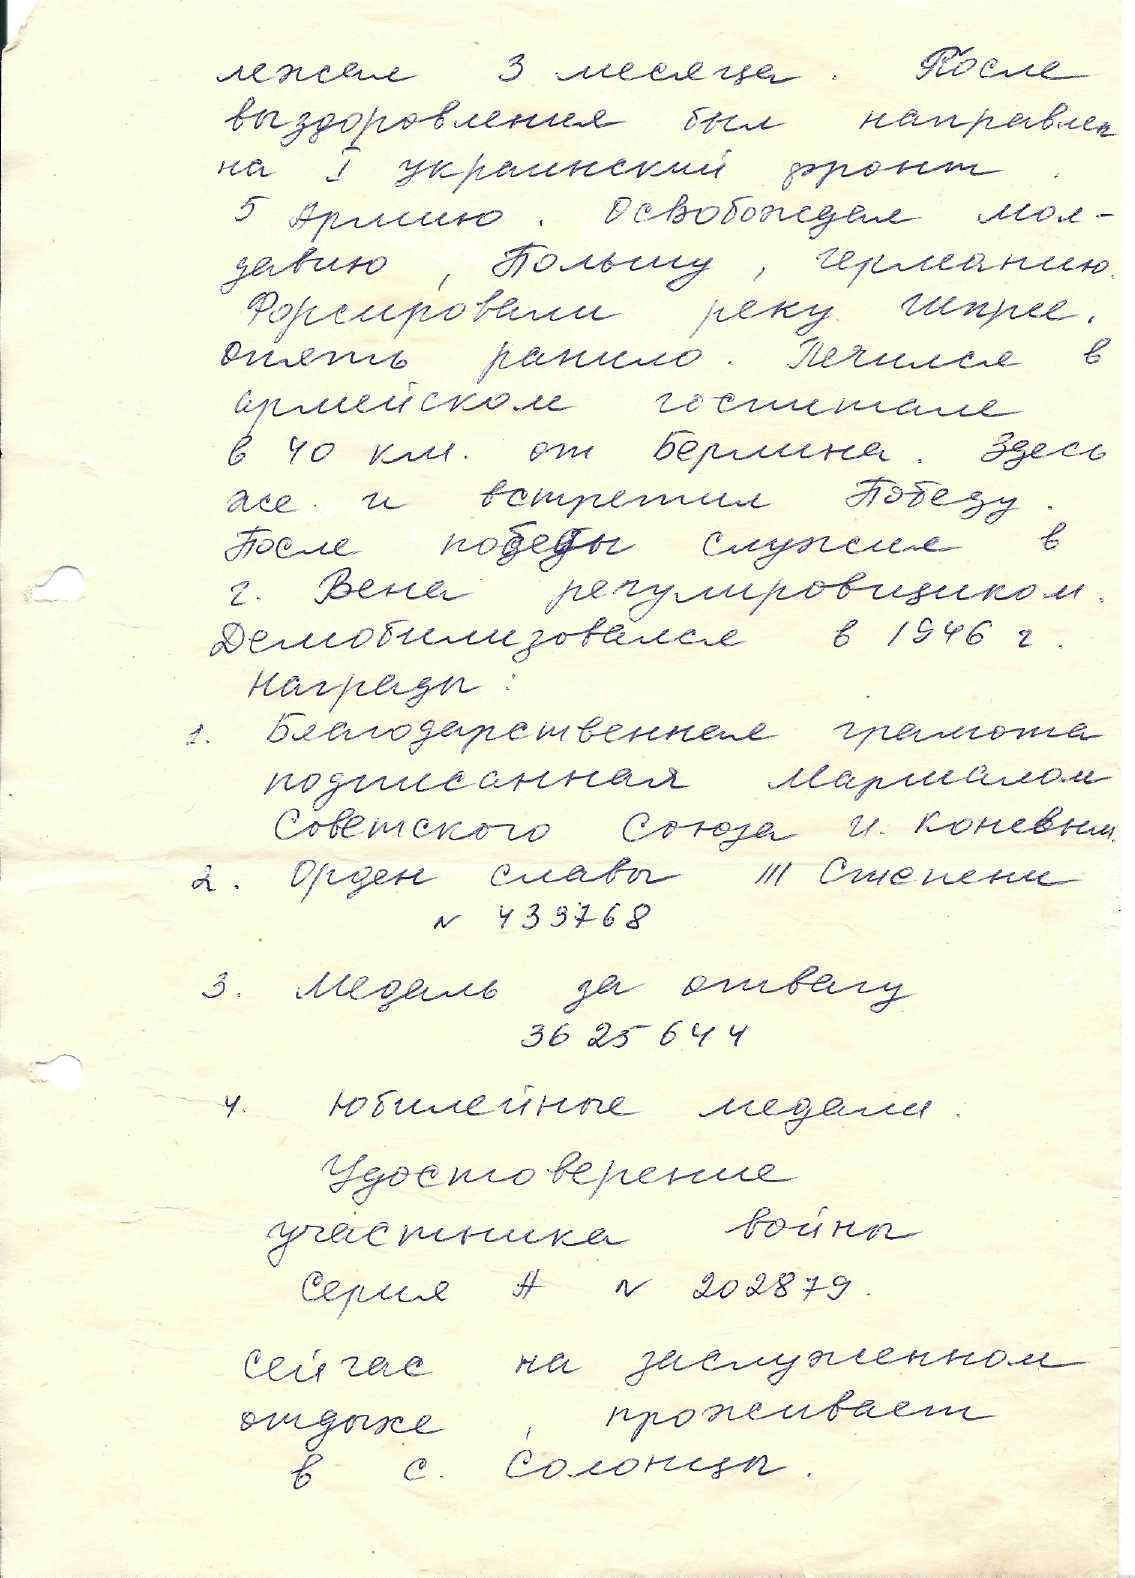 лежал 3 месяца. После
выздоровления был направлен
на I украинский фронт.
5 Армию. Освобождал Мол-
давию, Польшу, Германию.
Форсировали реку Шпрее,
опять ранило. Лечился в
армейском госпитале
в 40 км. от Берлина. Здесь
же и встретил Победу.
После победы служил в
г. Вена регулировщиком.
Демобилизовался в 1946 г.
Награды:
1. Благодарственная грамота
подписанная Маршалом
Советского Союза И. Коневым.
2. Орден славы III Степени
N 439768
3. Медаль за отвагу
3625644
4. Юбилейные медали.
Удостоверение
участника войны
Серия А N 202879.
Сейчас на заслуженном
отдыхе, проживает
в с. Солонцы.